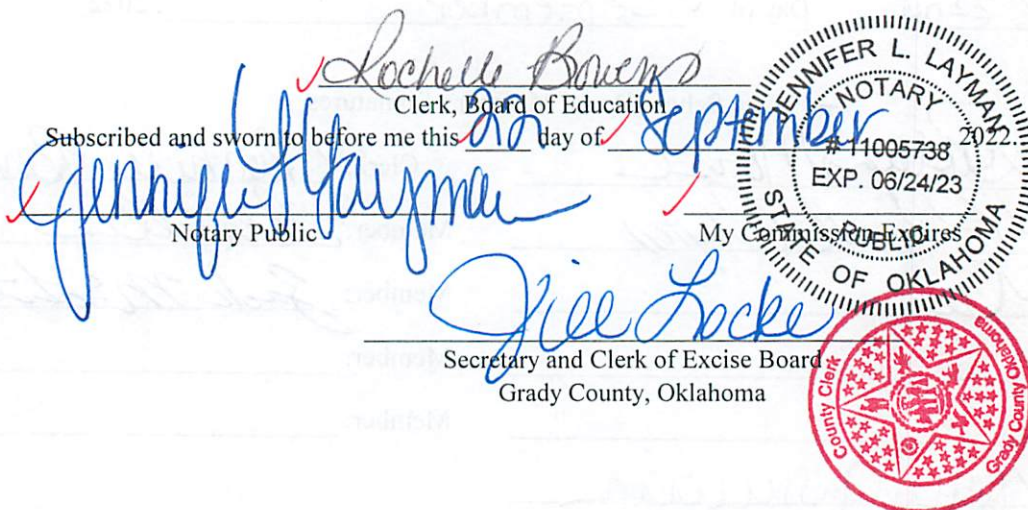 Rochelle Bowens
Clerk, Board of Education
Subscribed and sworn to before me this 22 day of September 2022.
Jennifer L Layman
Notary Public
My Commission Expires
JENNIFER L. LAYMAN
NOTARY
# 11005738
EXP. 06/24/23
PUBLIC
STATE OF OKLAHOMA
Jill Locke
Secretary and Clerk of Excise Board
Grady County, Oklahoma
County Clerk
Grady County Oklahoma